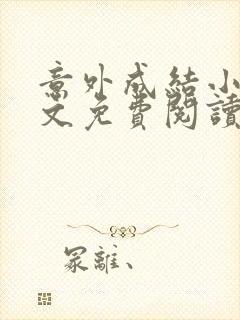 意外成結小
文免費閱讀
冢離、